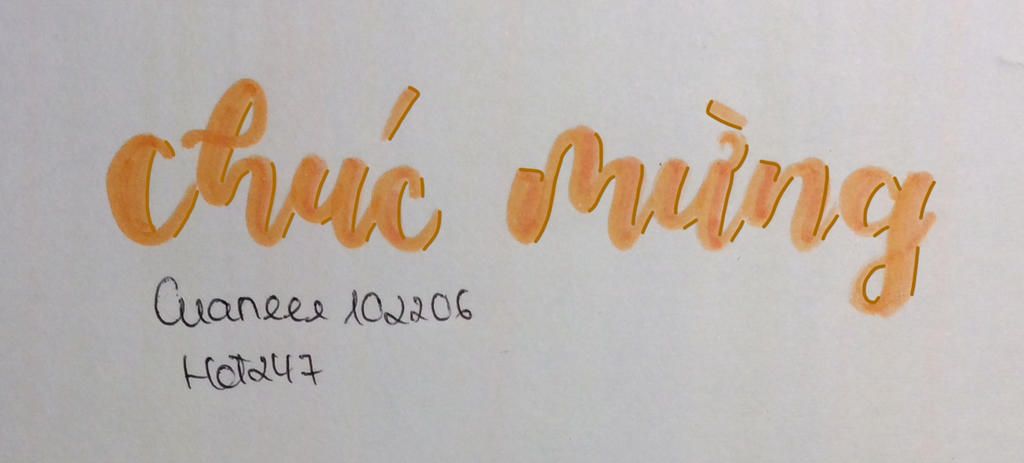 chúc mừng
Cuaneee 102206
Hot247